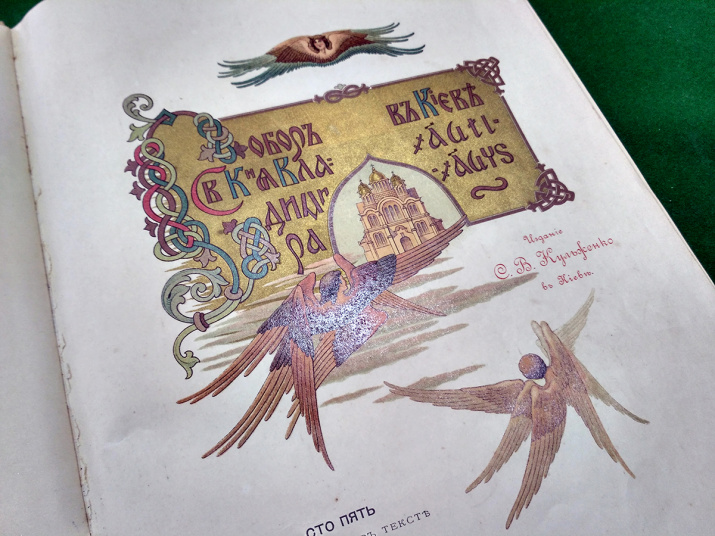 Соборъ
Св Кнѧ Вла-
димі
ра
въ Кіевѣ
-҂АѠЧЅ
Изданіе
С. В. Кульженко
въ Кіевѣ.
СТО ПЯТЬ
ТЕКСТѢ